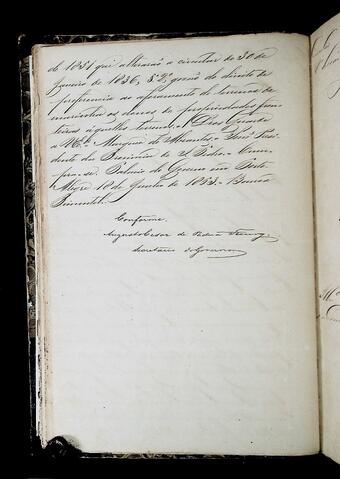 de 1851 que alterarão a circular de 30 de
Janeiro de 1836, só gosão do direito de
preferencia ao aforamento de terrenos de
marinhas os donos de propriedades fron-
teiras áquelles terrenos. Deos Guarde
a V.Ex.ª Marquez de Abrantes. Sñr Presi-
dente da Provincia de S. Pedro. Cum-
pra-se. Palacio do Governo em Porto
Alegre 18 de Junho de 1853.
Pimentel.
Conforme
Augusto Cesar de Padua
Secretario do Governo